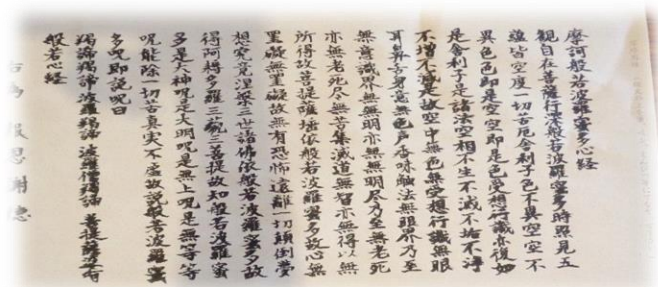 摩訶般若波羅蜜多心経
観自在菩薩行深般若波羅蜜多時照見五
蘊皆空度一切苦厄舎利子色不異空空不
異色色即是空空即是色受想行識亦復如
是舎利子是諸法空相不生不滅不垢不浄
不増不減是故空中無色無受想行識無眼
耳鼻舌身意無色声香味触法無眼界乃至
無意識界無無明亦無無明尽乃至無老死
亦無老死尽無苦集滅道無智亦無得以無
所得故菩提薩埵依般若波羅蜜多故心無
罣礙無罣礙故無有恐怖遠離一切顛倒夢
想究竟涅槃三世諸佛依般若波羅蜜多故
得阿耨多羅三藐三菩提故知般若波羅蜜
多是大神呪是大明呪是無上呪是無等等
呪能除一切苦真実不虚故説般若波羅蜜
多呪即説呪曰
羯諦羯諦波羅羯諦 波羅僧羯諦 菩提薩婆訶
般若心経
右為 報恩謝徳